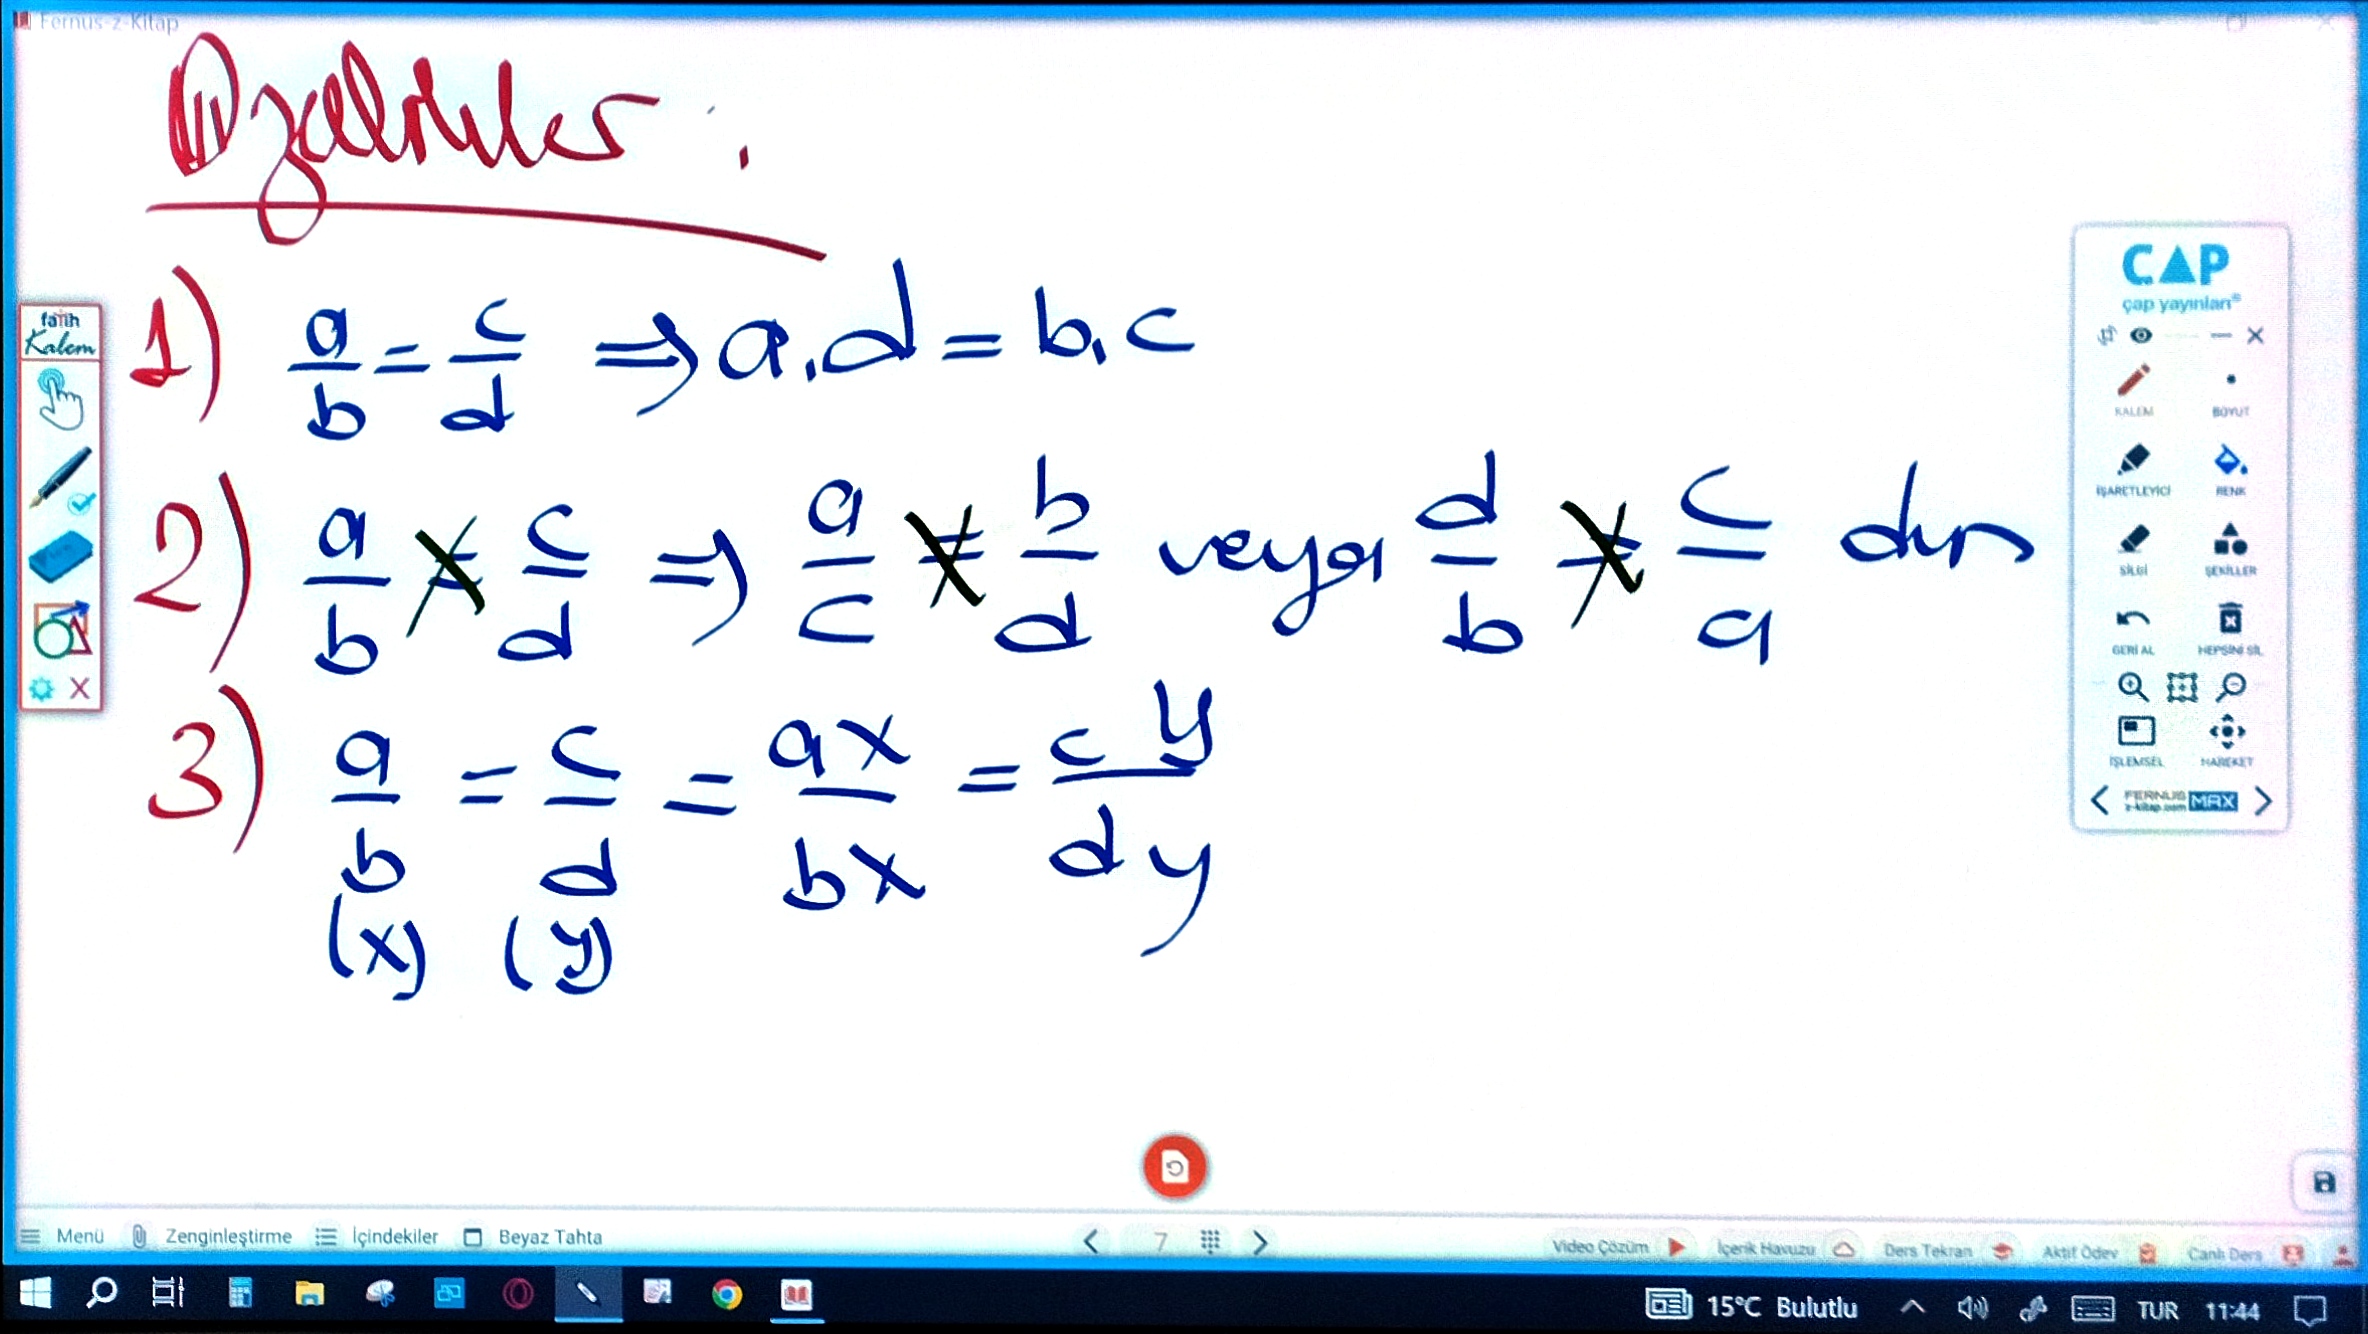 Fernus-z-Kitap
Özellikler :
1) a/b = c/d ⇒ a.d = b.c
2) a/b ≠ c/d ⇒ a/c ≠ b/d veya d/b ≠ c/a dır
3) a/b = c/d = ax/bx = cy/dy
(x) (y)
fatih
Kalem
CAP
çap yayınları®
KALEM BOYUT
İŞARETLEYİCİ RENK
SİLGİ ŞEKİLLER
GERİ AL HEPSİNİ SİL
İŞLEMSEL HAREKET
FERNUS z-kitap.com MAX
Menü Zenginleştirme İçindekiler Beyaz Tahta 7 Video Çözüm İçerik Havuzu Ders Tekrarı Aktif Ödev Canlı Ders
15°C Bulutlu TUR 11:44